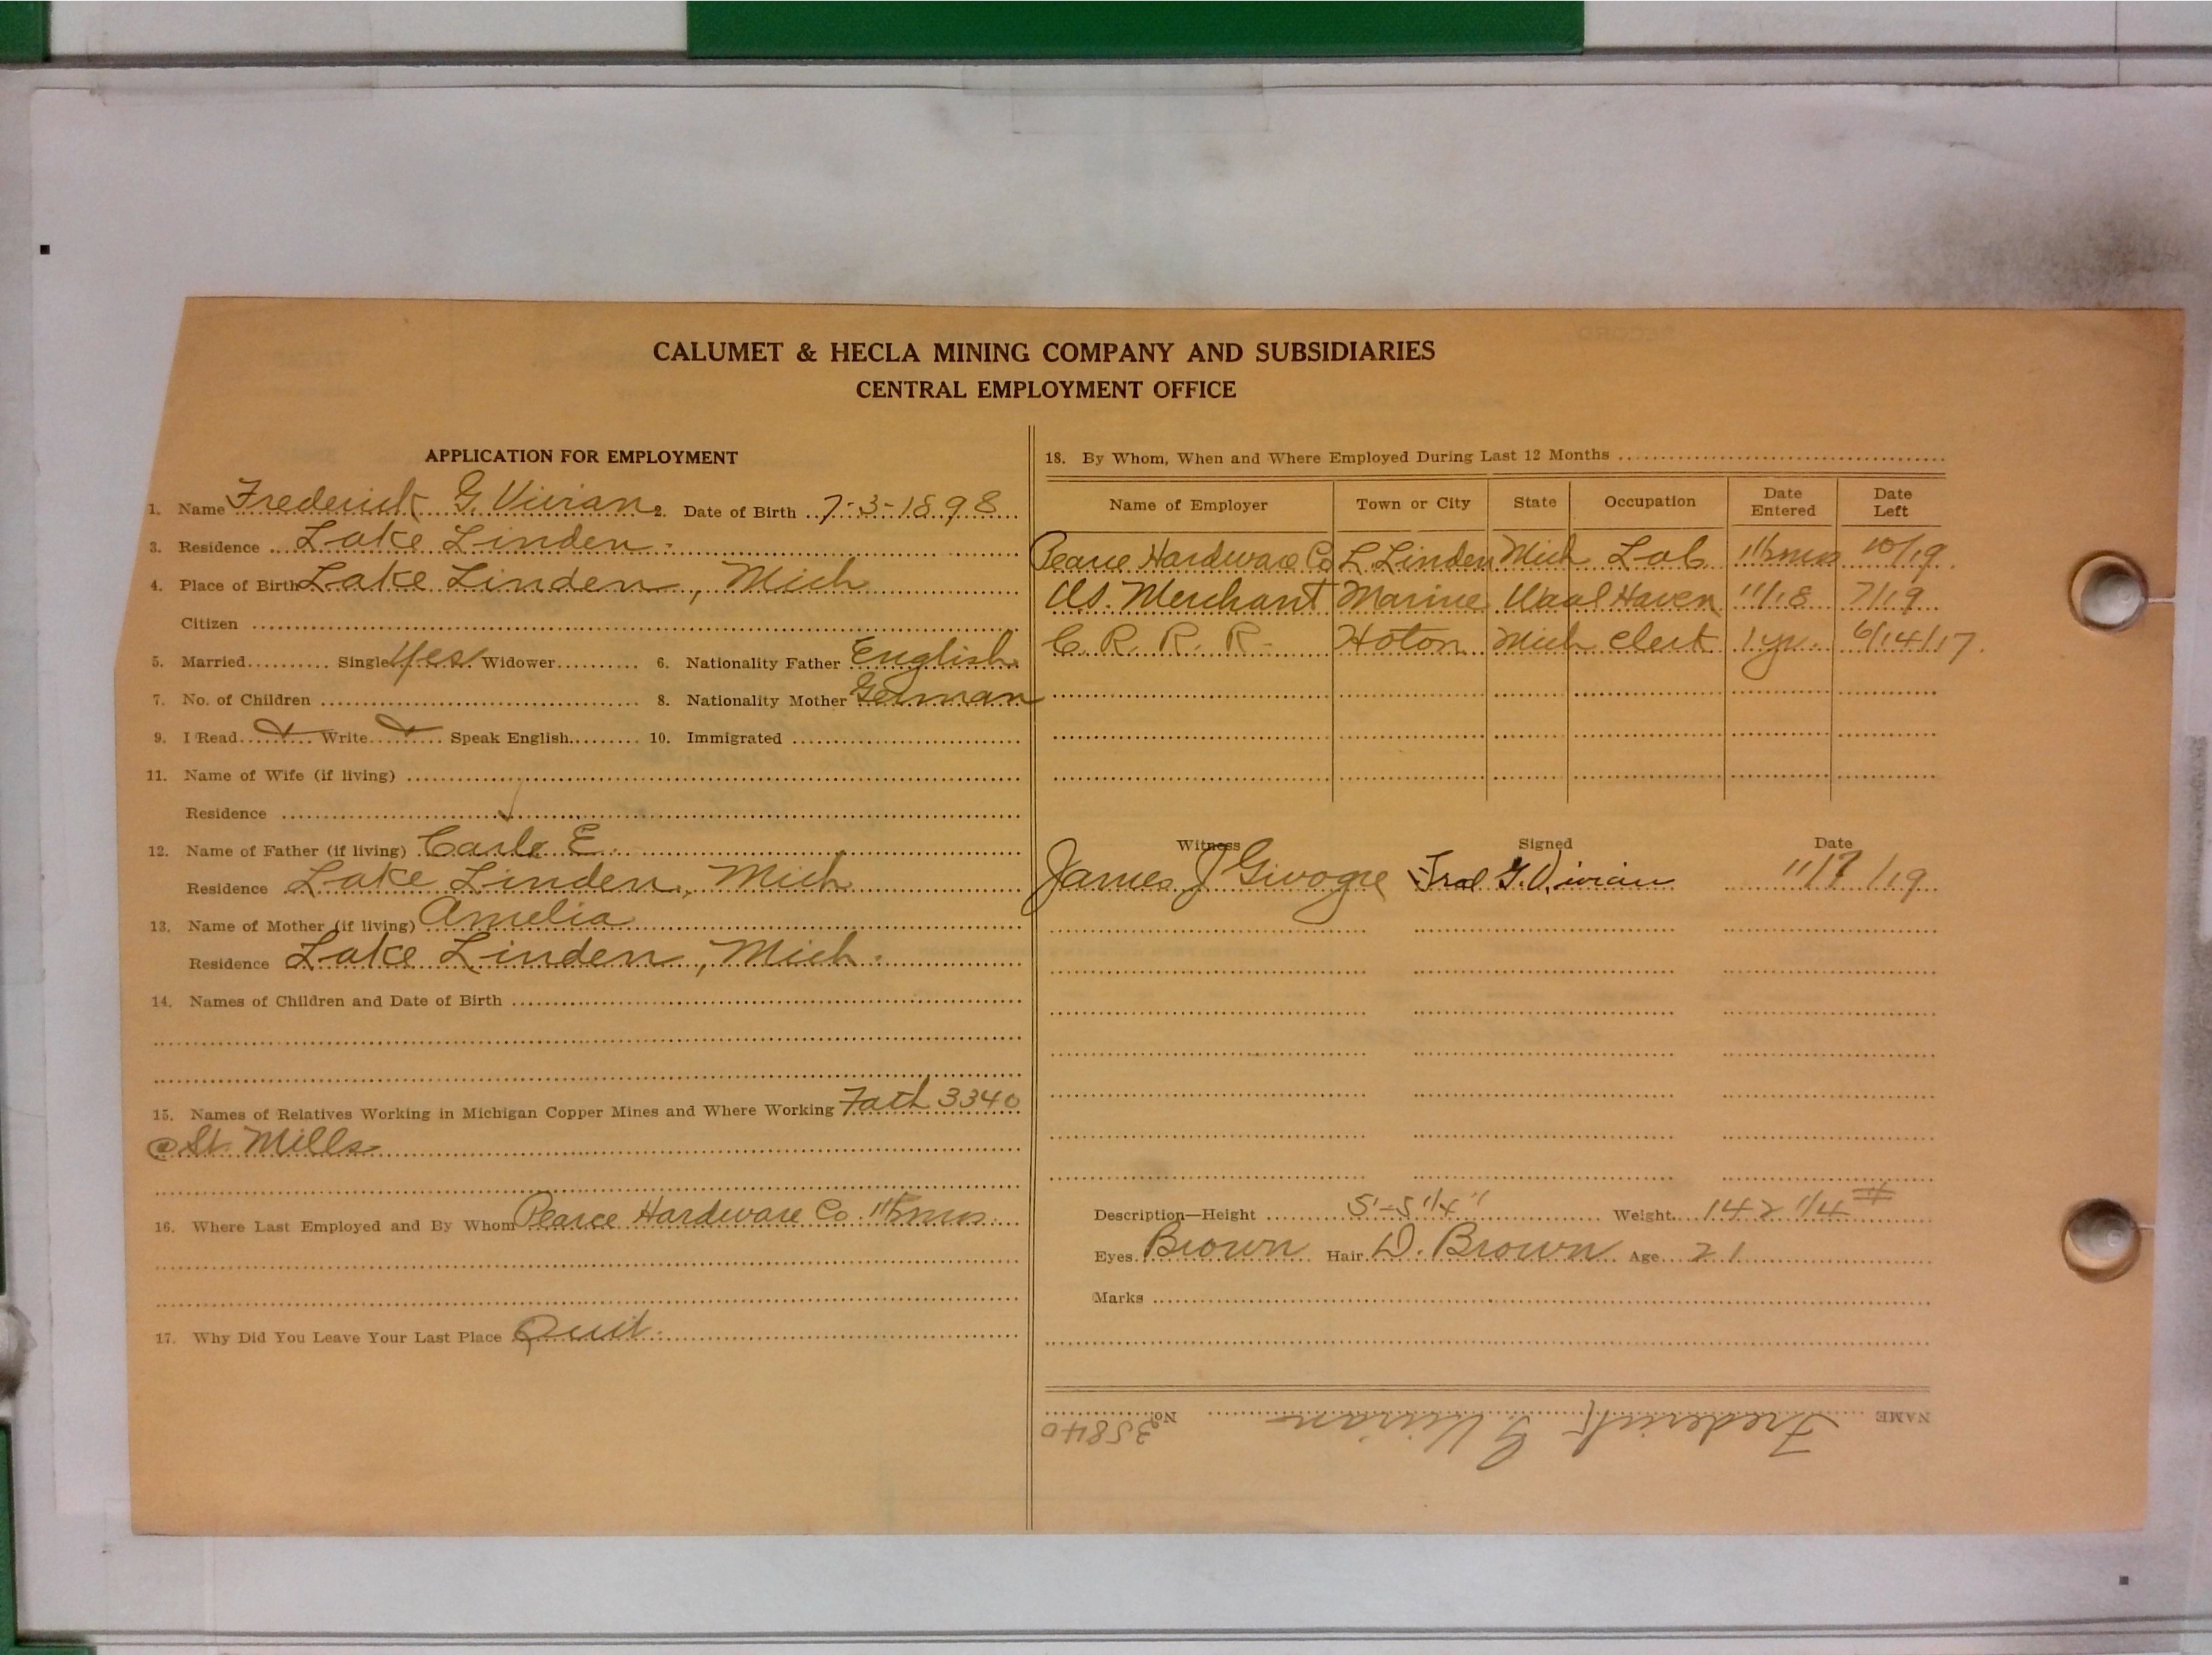 CALUMET & HECLA MINING COMPANY AND SUBSIDIARIES
CENTRAL EMPLOYMENT OFFICE
APPLICATION FOR EMPLOYMENT
1. Name Frederick G. Vivian 2. Date of Birth 7-3-1898
3. Residence Lake Linden
4. Place of Birth Lake Linden, Mich
Citizen
5. Married Single Yes Widower 6. Nationality Father English
7. No. of Children 8. Nationality Mother German
9. I Read Write Speak English 10. Immigrated
11. Name of Wife (if living)
Residence
12. Name of Father (if living) Carle E.
Residence Lake Linden, Mich
13. Name of Mother (if living) Amelia
Residence Lake Linden, Mich.
14. Names of Children and Date of Birth
15. Names of Relatives Working in Michigan Copper Mines and Where Working Fath 3340
@ St. Mills
16. Where Last Employed and By Whom Pearce Hardware Co.
17. Why Did You Leave Your Last Place Quit
18. By Whom, When and Where Employed During Last 12 Months
Name of Employer Town or City State Occupation Date Entered Date Left
Pearce Hardware Co L Linden Mich Lab 10/19
US. Merchant Marine Haven 11/18 7/19
C. R. R. R. Hoton Mich Clerk 1 yr. 6/14/17
Witness Signed Date
James J Fred G. Vivian 11/7/19
Description—Height 5'-5 1/4" Weight 142 1/4 #
Eyes Brown Hair D. Brown Age 21
Marks
NAME Frederick G. Vivian No. 35840